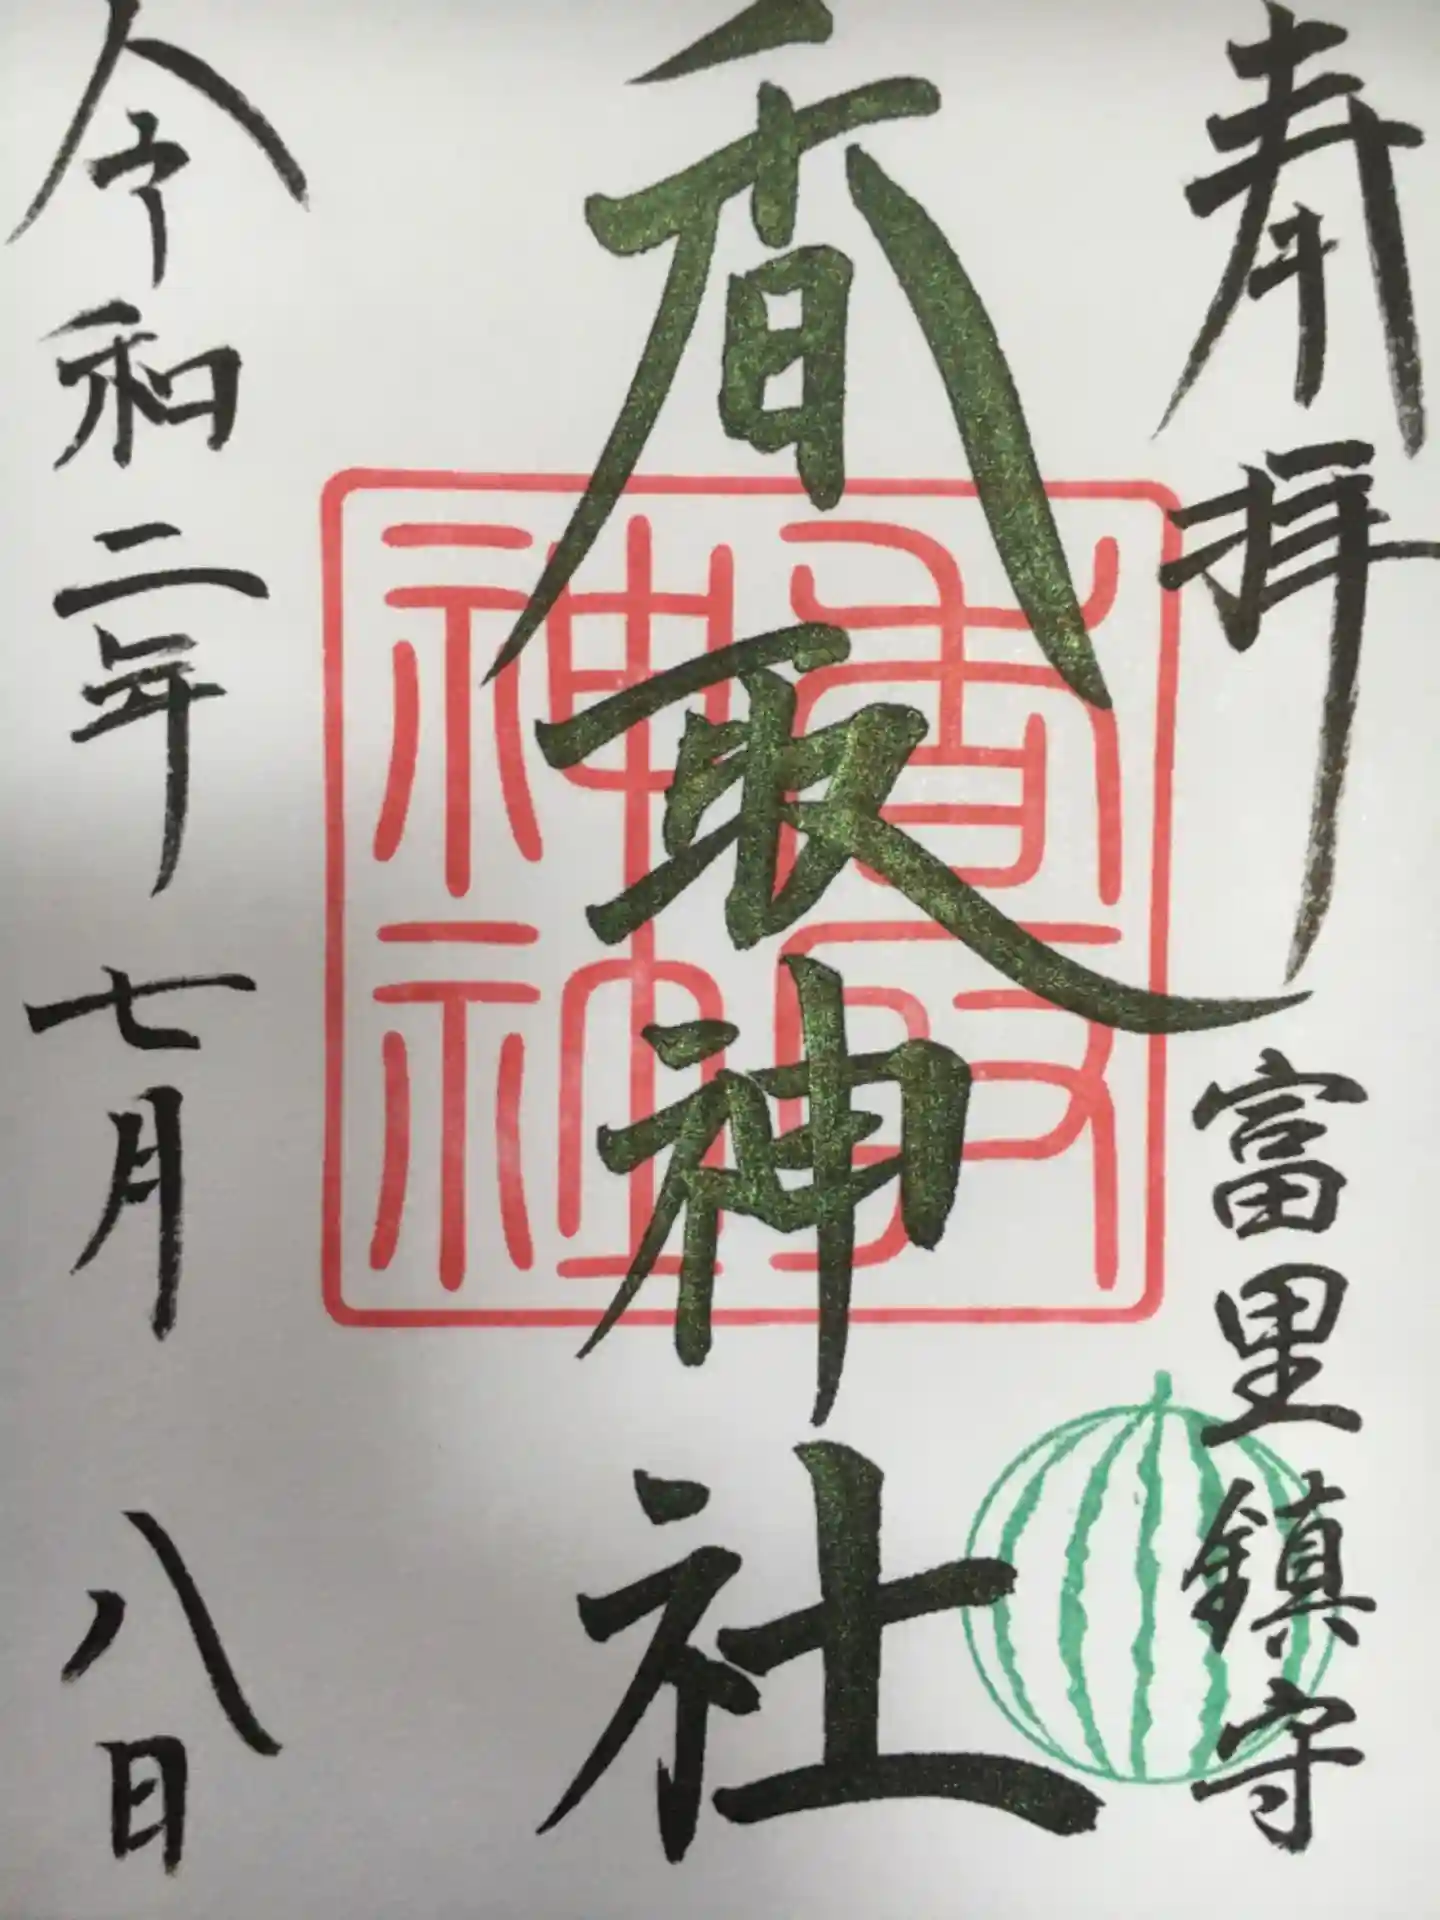 奉拝 富里鎮守
香取神社
香取神社
令和二年七月八日